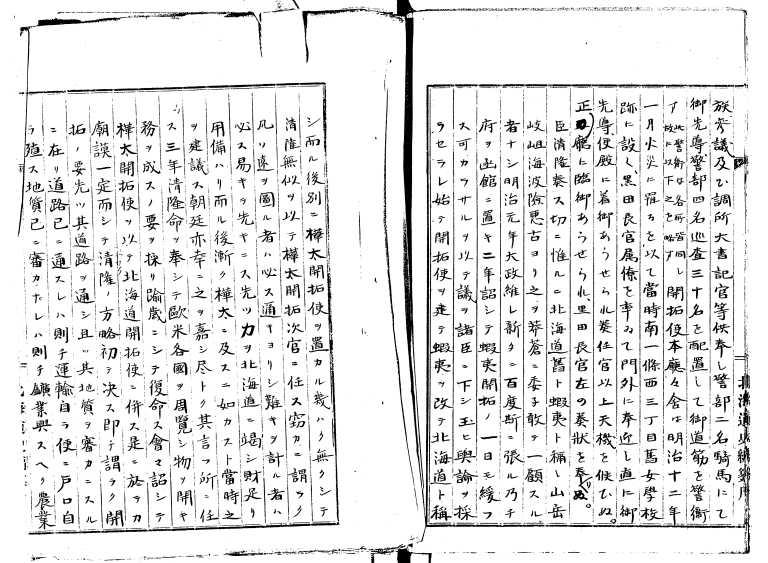 族参議及び調所大書記官等供奉し警部二名騎馬にて
御先導警部四名巡査三十名を配置して御道筋を警衛
す此警衛は各所皆同し故に以下之を略す開拓使本廳々舎は明治十二年
一月火災に罹るを以て當時南一條西三丁目舊女學校
跡に設く黒田長官属僚を率ゐて門外に奉迎し直に御
先導便殿に着御あらせられ奏任官以上天機を伺ひぬ。
正廳に臨御あらせられ、黒田長官左の奏状を奉りぬ。
臣清隆奏ス切ニ惟ルニ北海道舊ト蝦夷ト稱シ山岳
岐嶇海波險悪古ヨリ之ヲ莽蒼ニ委子敢テ一顧スル
者ナシ明治元年大政維レ新タニ百度斯ニ張ル乃チ
府ヲ函館ニ置キ二年詔シテ蝦夷開拓ノ一日モ緩フ
ス可カラサルヲ以テ議ヲ諸臣ニ下シ玉ヒ輿論ヲ採
ラセラレ始テ開拓使ヲ建テ蝦夷ヲ改テ北海道ト稱
シ而ル後別ニ樺太開拓使ヲ置カル幾ハク無クシテ
清隆無似ヲ以テ樺太開拓次官ニ任ス窃カニ謂ヘラク
凡ソ遠ヲ圖ル者ハ必ス通キヨリシ難キヲ計ル者ハ
必ス易キヲ先キニス先ツ力ヲ北海道ニ竭シ財足リ
用備ハリ而ル後漸ク樺太ニ及スニ如カスト當時之
ヲ建議ス朝廷亦幸ニ之ヲ嘉シ尽ト其言フ所ニ任
ス三年清隆命ヲ奉シテ歐米各國ヲ周覧シ物ヲ開キ
務ヲ成スノ要ヲ採リ踰歳ニシテ復命ス會マ詔シテ
樺太開拓使ヲ以テ北海道開拓使ニ併ス是ニ於テカ
廟謨一定而シテ清隆ノ方略初テ決ス即チ謂ラク開
拓ノ要先ツ其道路ヲ通シ且ツ其地質ヲ審カニスル
ニ在リ道路已ニ通スレハ則チ運輸自ラ便ニ戸口自
ラ殖ス地質已ニ審カナレハ則チ鑛業興スヘク農業